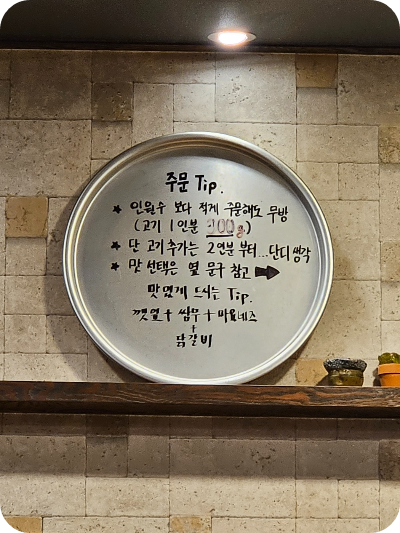 주문 Tip.
★ 인원수 보다 적게 주문해도 무방
(고기 1인분 200g)
★ 단 고기추가는 2인분 부터...단디 생각
★ 맛 선택은 옆 문구 참고 ➡
맛있게 드시는 Tip.
깻잎 + 쌈무 + 마요네즈
+
닭갈비